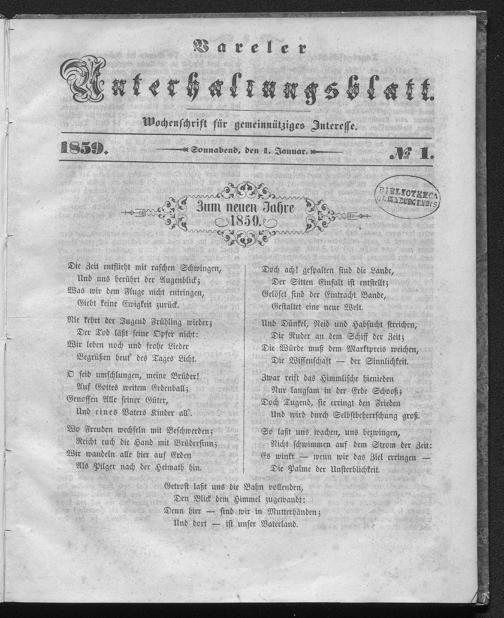 Vareler
Unterhaltungsblatt.
Wochenschrift für gemeinnütziges Interesse.
1859.
Sonnabend, den 1. Januar.
№ 1.
BIBLIOTHECA
OLDENBURGENSIS
Zum neuen Jahre
1859.
Die Zeit entflieht mit raschen Schwingen,
Und uns berührt der Augenblick;
Was wir dem Fluge nicht entringen,
Giebt keine Ewigkeit zurück.
Nie kehrt der Jugend Frühling wieder;
Der Tod läßt seine Opfer nicht:
Wir leben noch und frohe Lieder
Begrüßen heut' des Tages Licht.
O seid umschlungen, meine Brüder!
Auf Gottes weitem Erdenball;
Genossen Alle seiner Güter,
Und eines Vaters Kinder all'.
Wo Freuden wechseln mit Beschwerden;
Reicht euch die Hand mit Brüdersinn;
Wir wandeln alle hier auf Erden
Als Pilger nach der Heimath hin.
Doch ach! gespalten sind die Lande,
Der Sitten Einfalt ist entstellt;
Gelöset sind der Eintracht Bande,
Gestaltet eine neue Welt.
Und Dünkel, Neid und Habsucht streichen,
Die Ruder an dem Schiff der Zeit;
Die Würde muß dem Marktpreis weichen,
Die Wissenschaft — der Sinnlichkeit.
Zwar reift das Himmlische hienieden
Nur langsam in der Erde Schooß;
Doch Tugend, sie erringt den Frieden
Und wird durch Selbstbeherrschung groß.
So laßt uns wachen, uns bezwingen,
Nicht schwimmen auf dem Strom der Zeit:
Es winkt — wenn wir das Ziel erringen —
Die Palme der Unsterblichkeit.
Getrost laßt uns die Bahn vollenden,
Den Blick dem Himmel zugewandt:
Denn hier — sind wir in Mutterhänden;
Und dort — ist unser Vaterland.